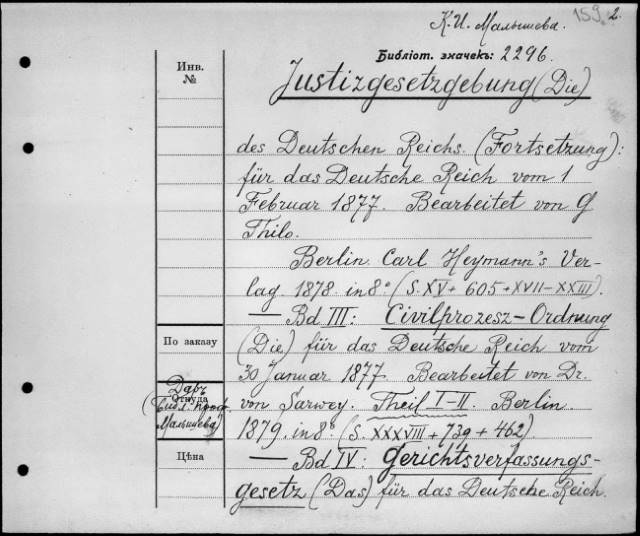 К. И. Малышева.
159 2.
Библіот. значекъ: 2296.
Инв.
№
Justizgesetzgebung (Die)
des Deutschen Reichs. (Fortsetzung):
für das Deutsche Reich vom 1
Februar 1877. Bearbeitet von G
Thilo.
Berlin. Carl Heymann's Ver-
lag. 1878. in 8° (S. XV + 605 + XVII–XXIII).
— Bd III: Civilprozesz-Ordnung
По заказу
(Die) für das Deutsche Reich vom
30 Januar 1877. Bearbeitet von Dr.
Даръ
Откуда
(Библ. проф.
Малышева)
von Sarwey. Theil I–II. Berlin.
1879. in 8° (S. XXXVIII + 739 + 462).
Цѣна
— Bd IV: Gerichtsverfassungs-
gesetz (Das) für das Deutsche Reich.